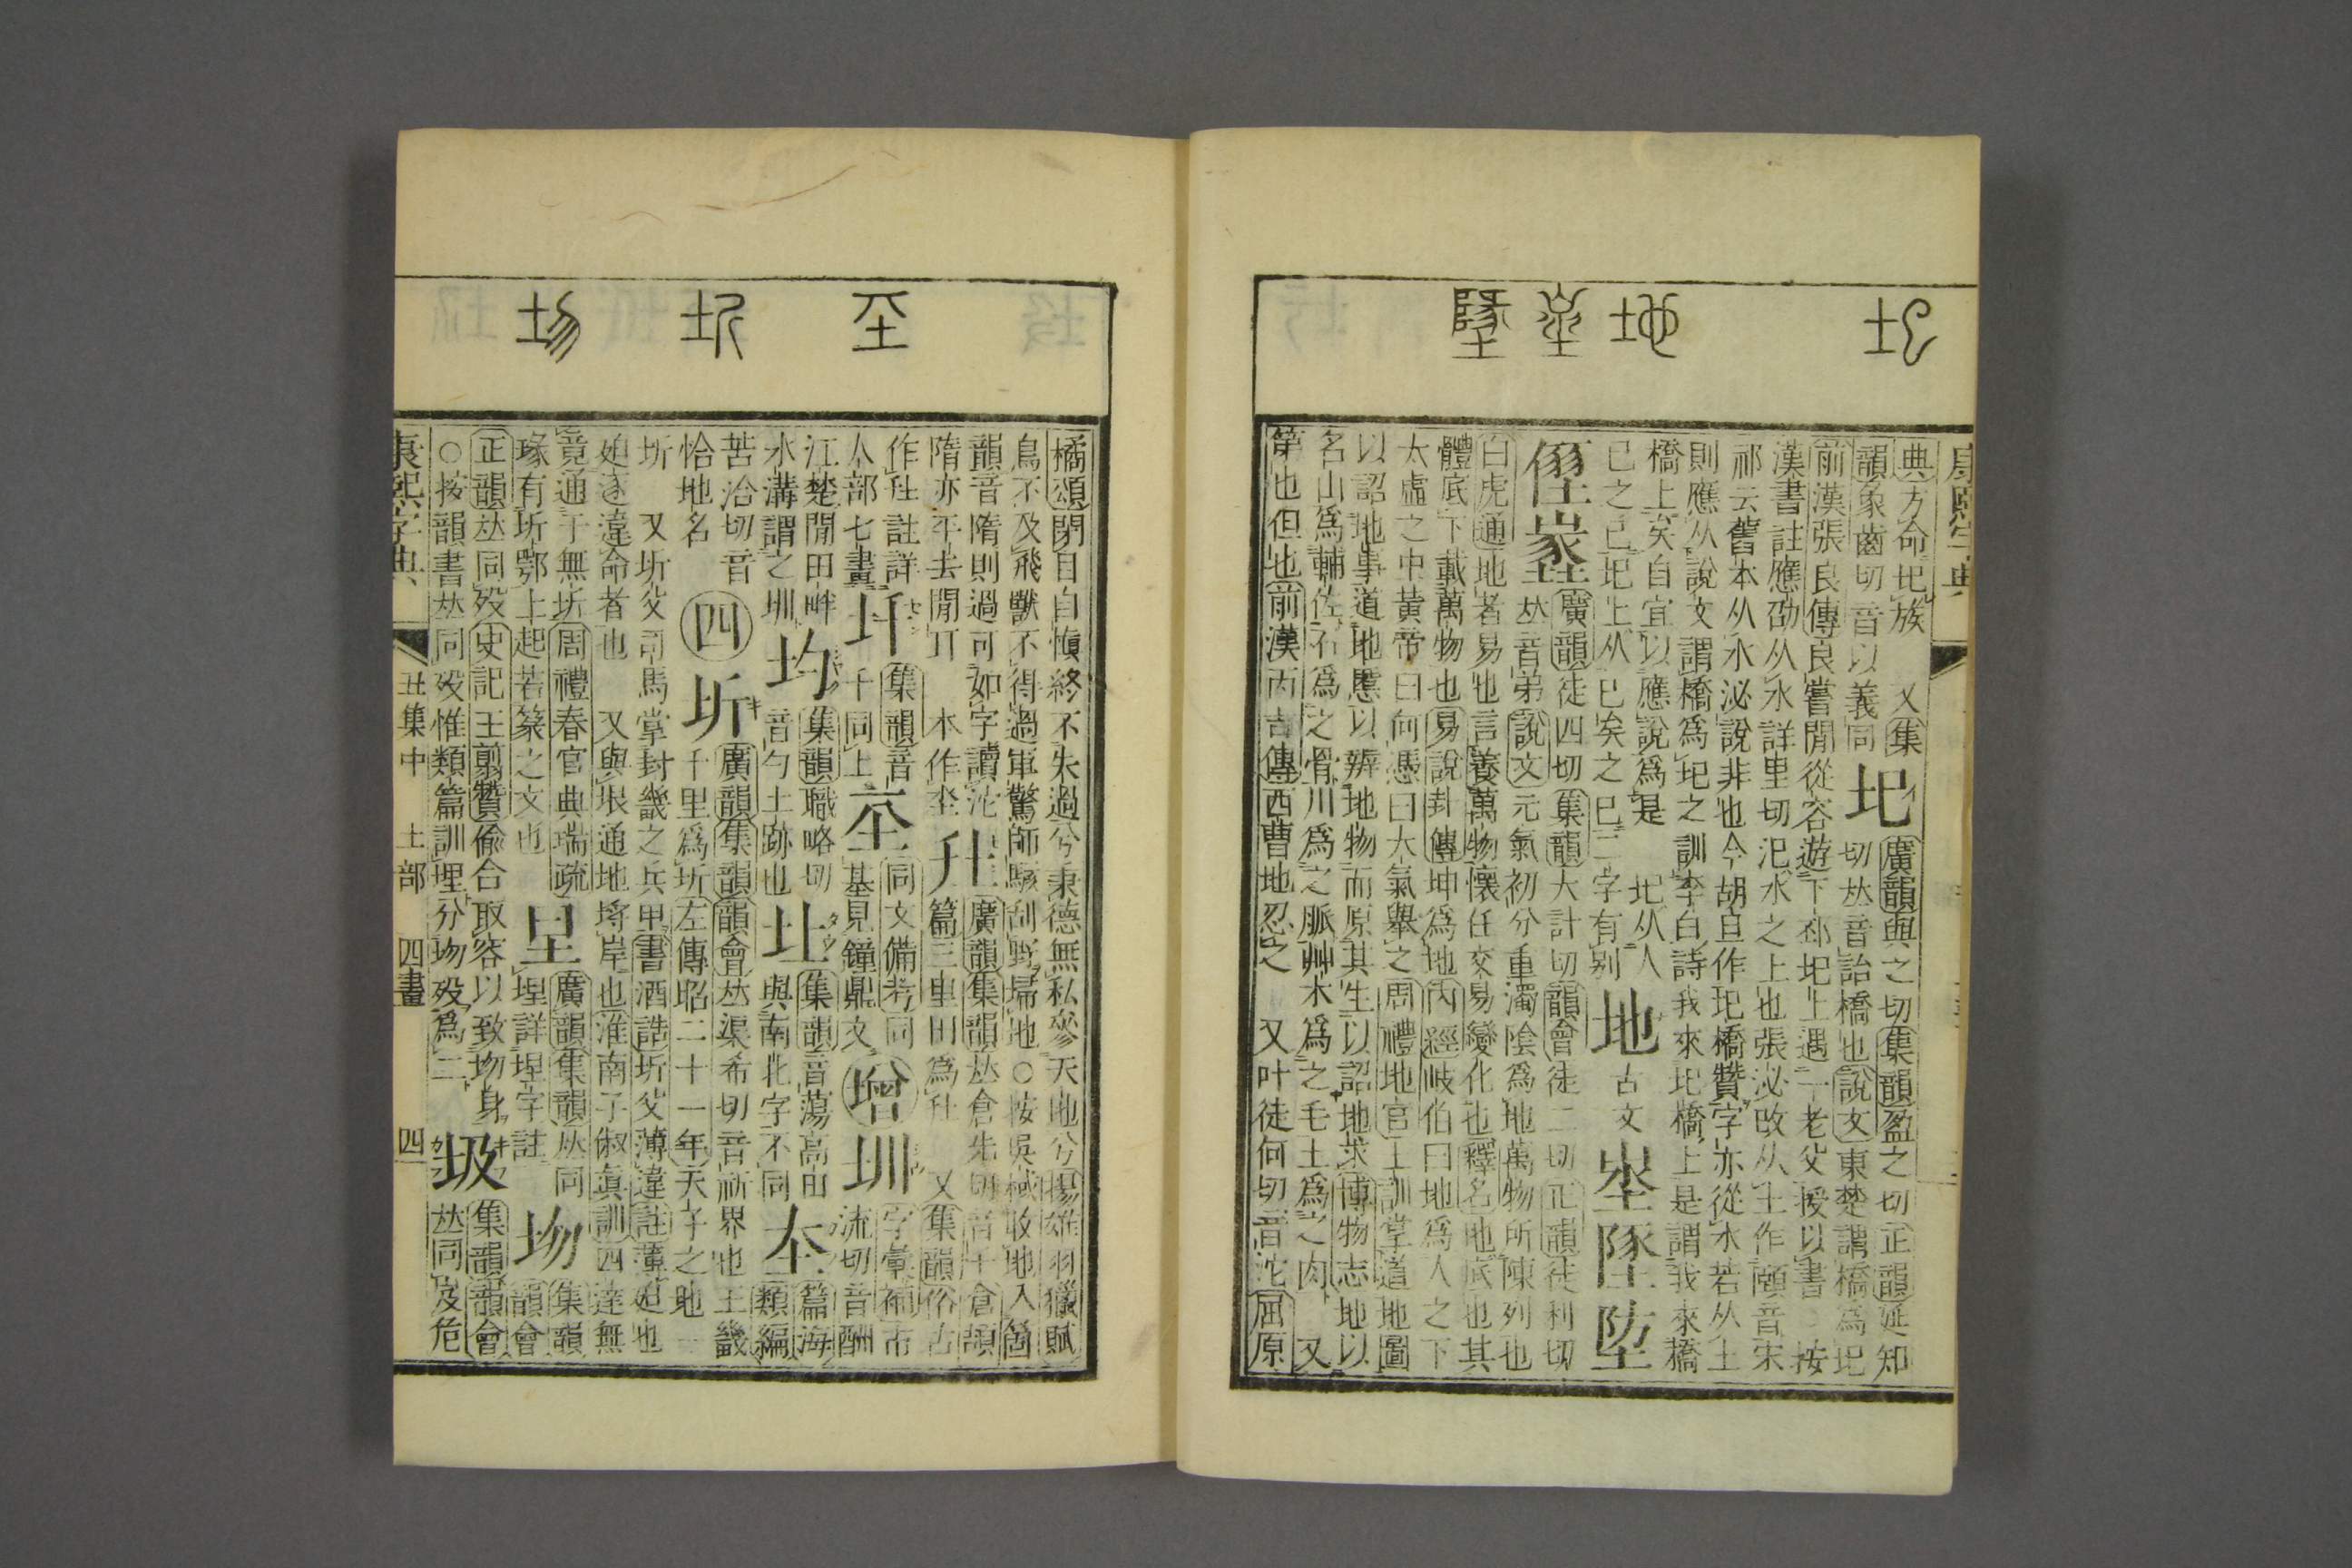 康熙字典
典方命圮族 又集
韻象齒切音以義同
圯
廣韻與之切集韻盈之切正韻延知
切𠀤音詒橋也說文東楚謂橋爲圯
前漢張良傳良嘗閒從容遊下邳圯上遇一老父授以書○按
漢書註應劭从水詳里切汜水之上也張泌改从土作頤音宋
祁云舊本从水泌說非也今胡旦作圯橋贊字亦從水若从土
則應从說文謂橋爲圯之訓李白詩我來圯橋上是謂我來橋
橋上矣自宜以應說爲是 圯从人
已之已圮上从已矣之已二字有别
地
古文
埊墬埅
廣韻徒四切集韻大計切韻會徒二切正韻徒利切
𠀤音弟說文元氣初分重濁陰爲地萬物所陳列也
白虎通地者易也言養萬物懷任交易變化也釋名地底也其
體底下載萬物也易說卦傳坤爲地內經岐伯曰地爲人之下
太虛之中黃帝曰何憑曰大氣舉之周禮地官土訓掌道地圖
以詔地事道地慝以辨地物而原其生以詔地求博物志地以
名山爲輔佐石爲之骨川爲之脈艸木爲之毛土爲之肉 又
第也但也前漢丙吉傳西曹地忍之 又叶徒何切音沱屈原
橘頌閉目自愼終不失過兮秉德無私參天地兮揚雄羽獵賦
鳥不及飛獸不得過軍驚師駭刮野掃地○按吳棫收地入箇
韻音隋則過可如字讀沱
隋亦平去閒丌 本作坙
圱
廣韻集韻𠀤倉先切音千倉頡
篇三里田爲圱 又集韻俗古
作圱註詳
人部七畫
圲
集韻音
千同上
坖
同文備考同
基見鐘鼎文
增
圳
字彙補市
流切音酬
江楚閒田畔
水溝謂之圳
圴
集韻職略切
音勺土跡也
圵
集韻音蕩高田
與南北字不同
夲
篇海
類編
苦洽切音
恰地名
四
圻
廣韻集韻韻會𠀤渠希切音祈界也王畿
千里爲圻左傳昭二十一年天子之地一
圻 又圻父司馬掌封畿之兵甲書酒誥圻父薄違註薄迫也
迫逐違命者也 又與垠通地垮岸也淮南子俶眞訓四達無
竟通于無圻周禮春官典瑞疏
瑑有圻鄂上起若篆之文也
㘿
廣韻集韻𠀤同
埋詳埋字註
圽
集韻
韻會
正韻𠀤同歿史記王翦贊偷合取容以致圽身
○按韻書𠀤同歿惟類篇訓埋分圽歿爲二
圾
集韻韻會
𠀤同岌危
康熙字典 丑集中 土部 四畫 四